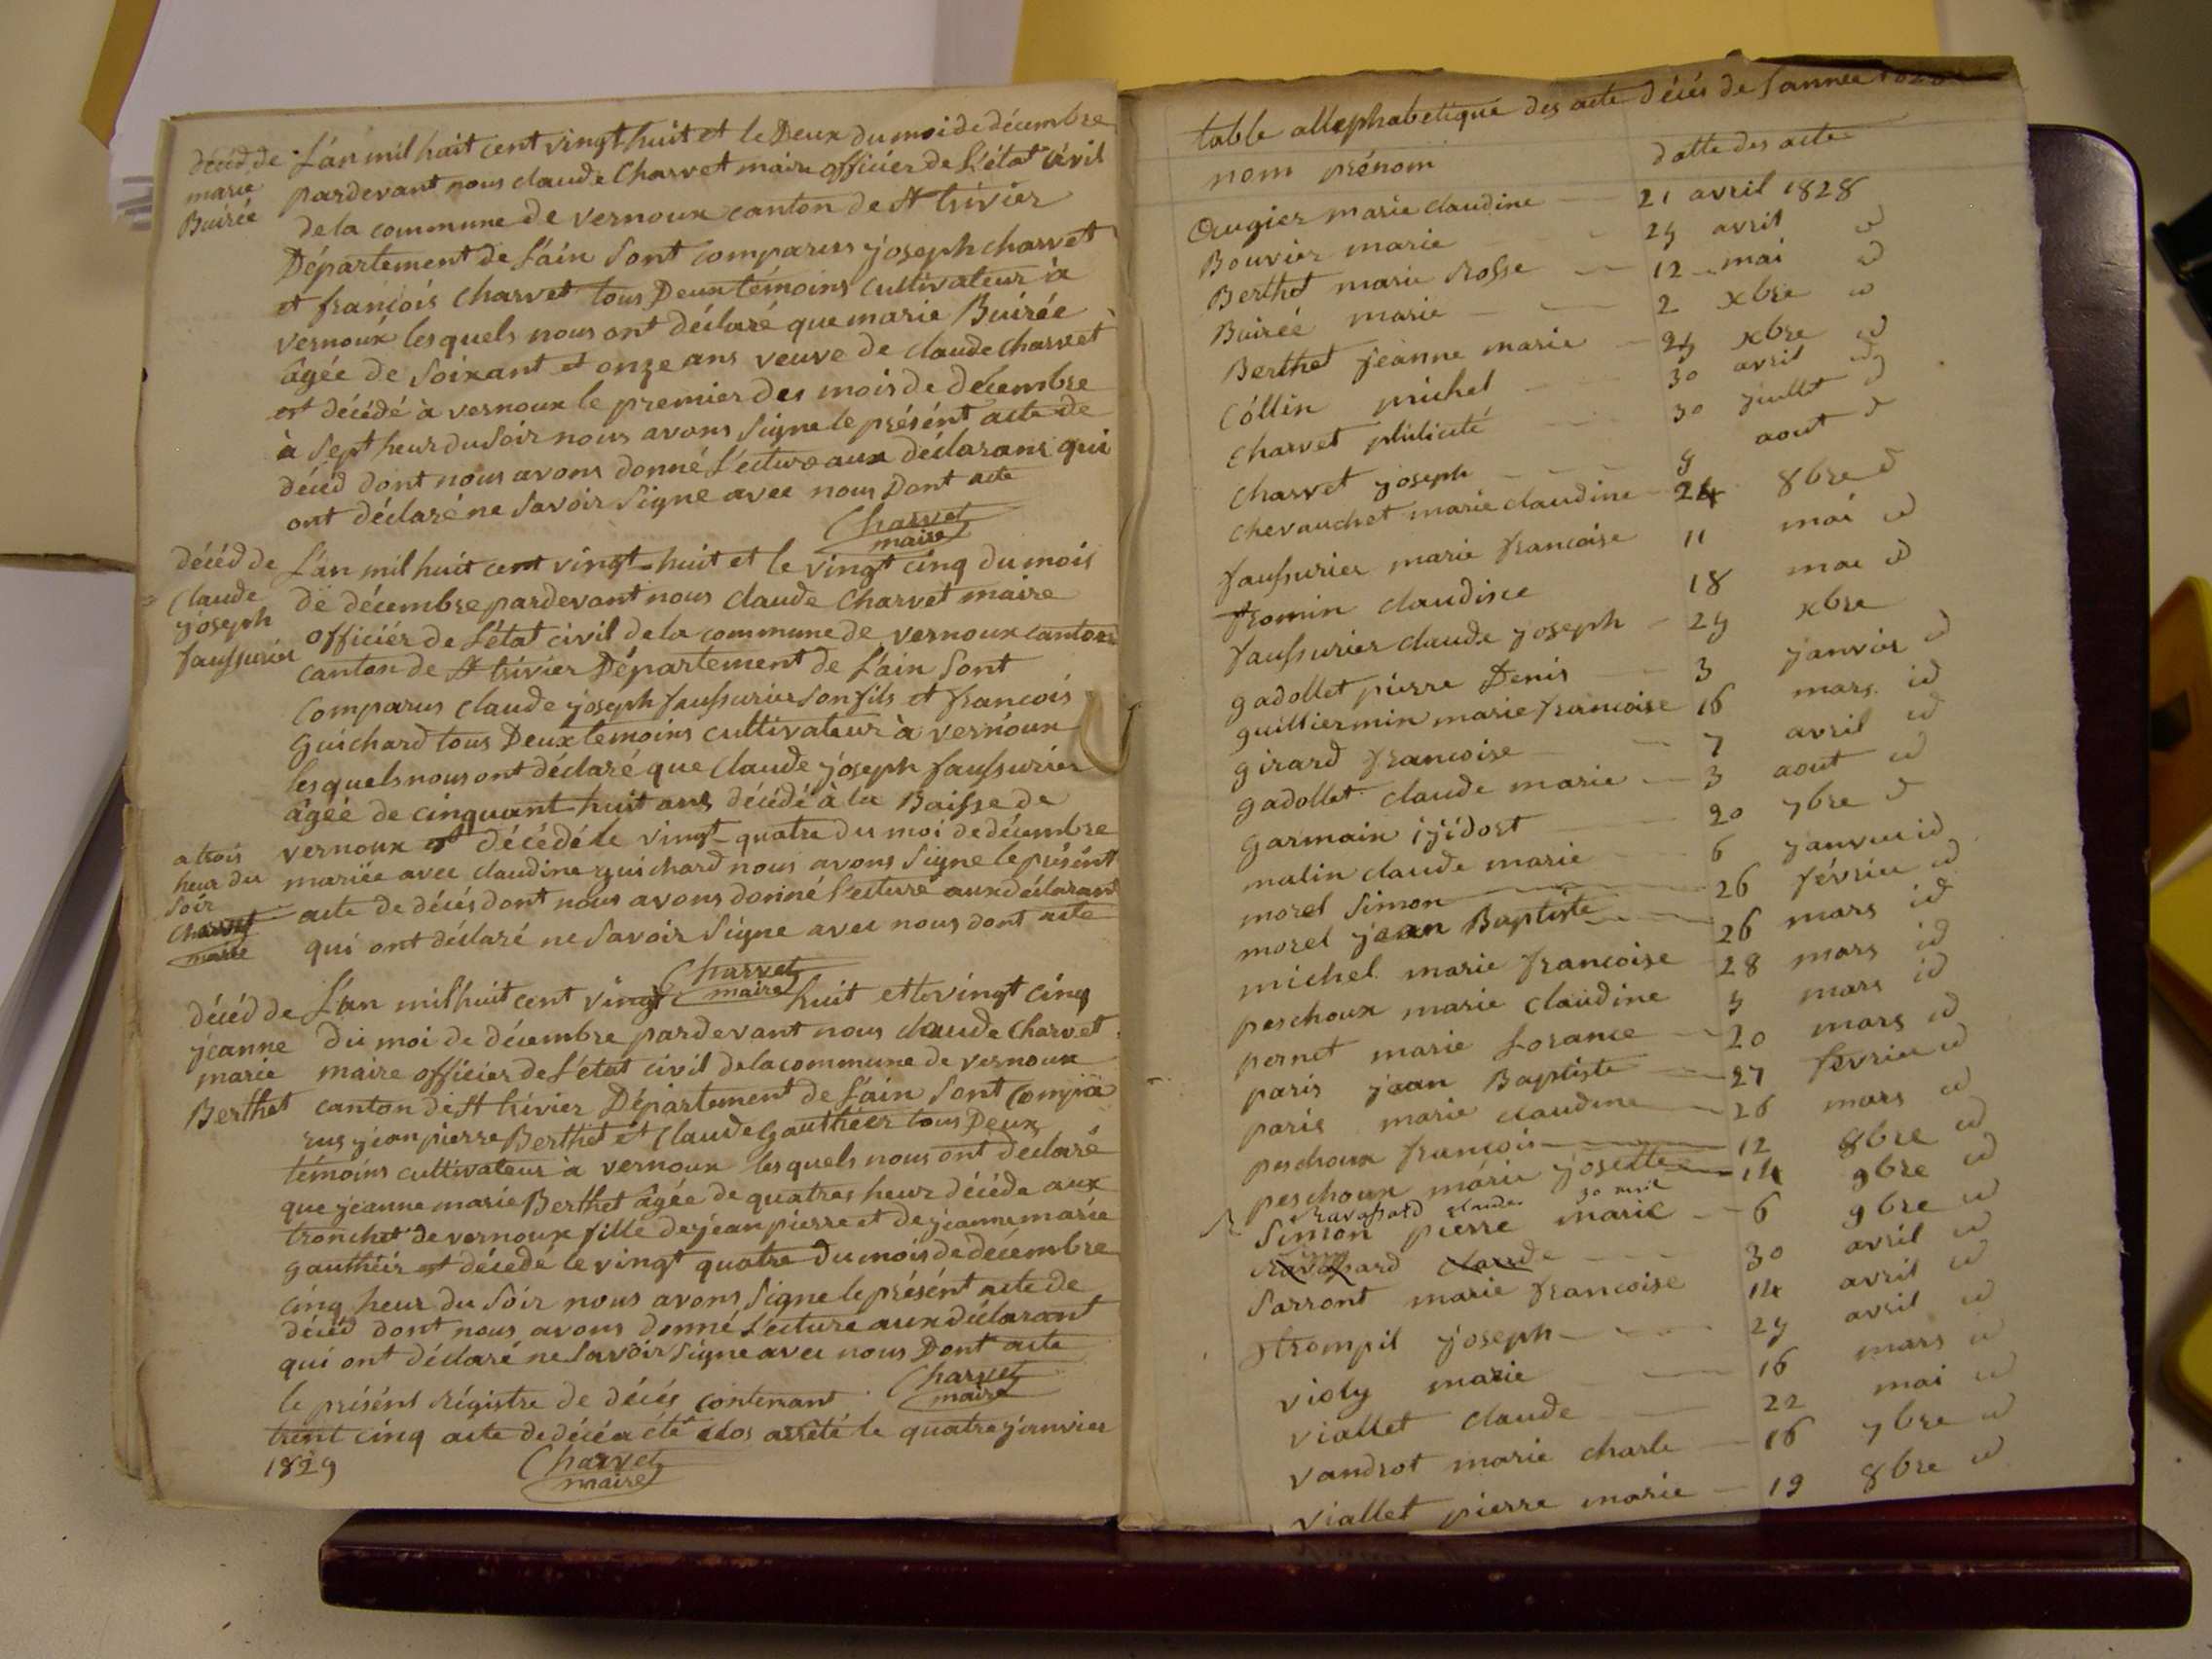 décéd de
marie
Buirée
L'an mil huit cent vingt huit et le Deux du moi de décembre
pardevant nous claude Charvet maire officier de L'état civil
de la commune de vernoux canton de St trivier
Département de L'áin Sont comparus joseph charvet
et francois Charvet tous Deux témoins cultivateur à
vernoux lesquels nous ont déclaré que marie Buirée
âgée de Soixant et onze ans veuve de claude charvet
est décédé à vernoux le premier des mois de décembre
à Sept heur du Soir nous avons Signe le présént acte de
décéd dont nous avons donné L'ecture aux déclarans qui
ont déclaré ne Savoir Signe avec nous Dont acte
Charvet
maire
décéd de
Claude
joseph
faussurier
L'an mil huit cent vingt-huit et le vingt cinq du mois
de décembre pardevant nous claude Charvet maire
officiér de L'état civil de la commune de vernoux canton
canton de St trivier Département de L'ain Sont
Comparus claude joseph faussurier son fils et francois
Guichard tous Deux temoins cultivateur à vernoux
lesquels nous ont déclaré que claude joseph faussurier
âgée de cinquant huit ans décédé à la Baisse de
vernoux et décédé le vingt-quatre du moi de décembre
a trois
heur du
Soir
Charvet
maire
mariée avec claudine guichard nous avons Signe le présént
acte de décés dont nous avons donné l'ecture aux déclarant
qui ont déclaré ne Savoir Signe avec nous dont acte
Charvet
maire
décéd de
jeanne
marie
Berthet
L'an mil huit cent vingt huit et le vingt cinq
du moi de décembre pardevant nous claude Charvet
maire officier de L'état civil de la commune de vernoux
canton de St trivier Département de L'ain Sont compa
rus jean pierre Berthet et Claude Gauthier tous Deux
témoins cultivateur à vernoux lesquels nous ont déclaré
que jeanne marie Berthet âgée de quatres heur décéde aux
tronchet de vernoux fille de jean pierre et de jeanne marie
gauthier et décédé le vingt quatre du mois de décembre
cinq heur du Soir nous avons Signe le présént acte de
décéd dont nous avons donné L'ecture aux déclarant
qui ont déclaré ne Savoir Signe avec nous Dont acte
Charvet
maire
le présént régistre de décés contenant
trent cinq acte de décé a été clos arrété le quatre janvier
1829
Charvet
maire
table allephabetique des acte décés de l'année
nom prénom datte des acte
Augier marie claudine 21 avril 1828
Bouvier marie 29 avril id
Berthet marie Rosse 12 mai id
Buirée marie 2 xbre id
Berthet jeanne marie 24 xbre id
Cóllin michel 30 avril id
Charvet philicité 30 juillt id
Charvet joseph 9 aout id
Chevauchet marie claudine 24 8bre id
faussurier marie francoise 11 mai id
fromin claudine 18 mai id
faussurier claude joseph 29 xbre
gadollet pierre Denis 3 janvier id
guilliermin marie francoise 16 mars id
girard francoise 7 avril id
gadollet claude marie 3 aout id
Garmain 20 7bre id
malin claude marie 6 janvier id
morel Simon 26 février id
morel jean Baptiste 26 mars id
michel marie francoise 28 mars id
peschoux marie claudine 9 mars id
pernet marie Lorance 20 mars id
paris jean Baptiste 27 fevrier id
paris marie claudine 26 mars id
peschoux francois 12 8bre id
peschoux marie josette 14 9bre id
Ravassard claude 30 avril
Simon pierre marie 6 9bre id
Ravassard claude 30 avril id
Sarront marie francoise 14 avril id
Strompil joseph 29 avril id
violy marie 16 mars id
viallet claude 22 mai id
vandrot marie charle 16 7bre id
viallet pierre marie 19 8bre id